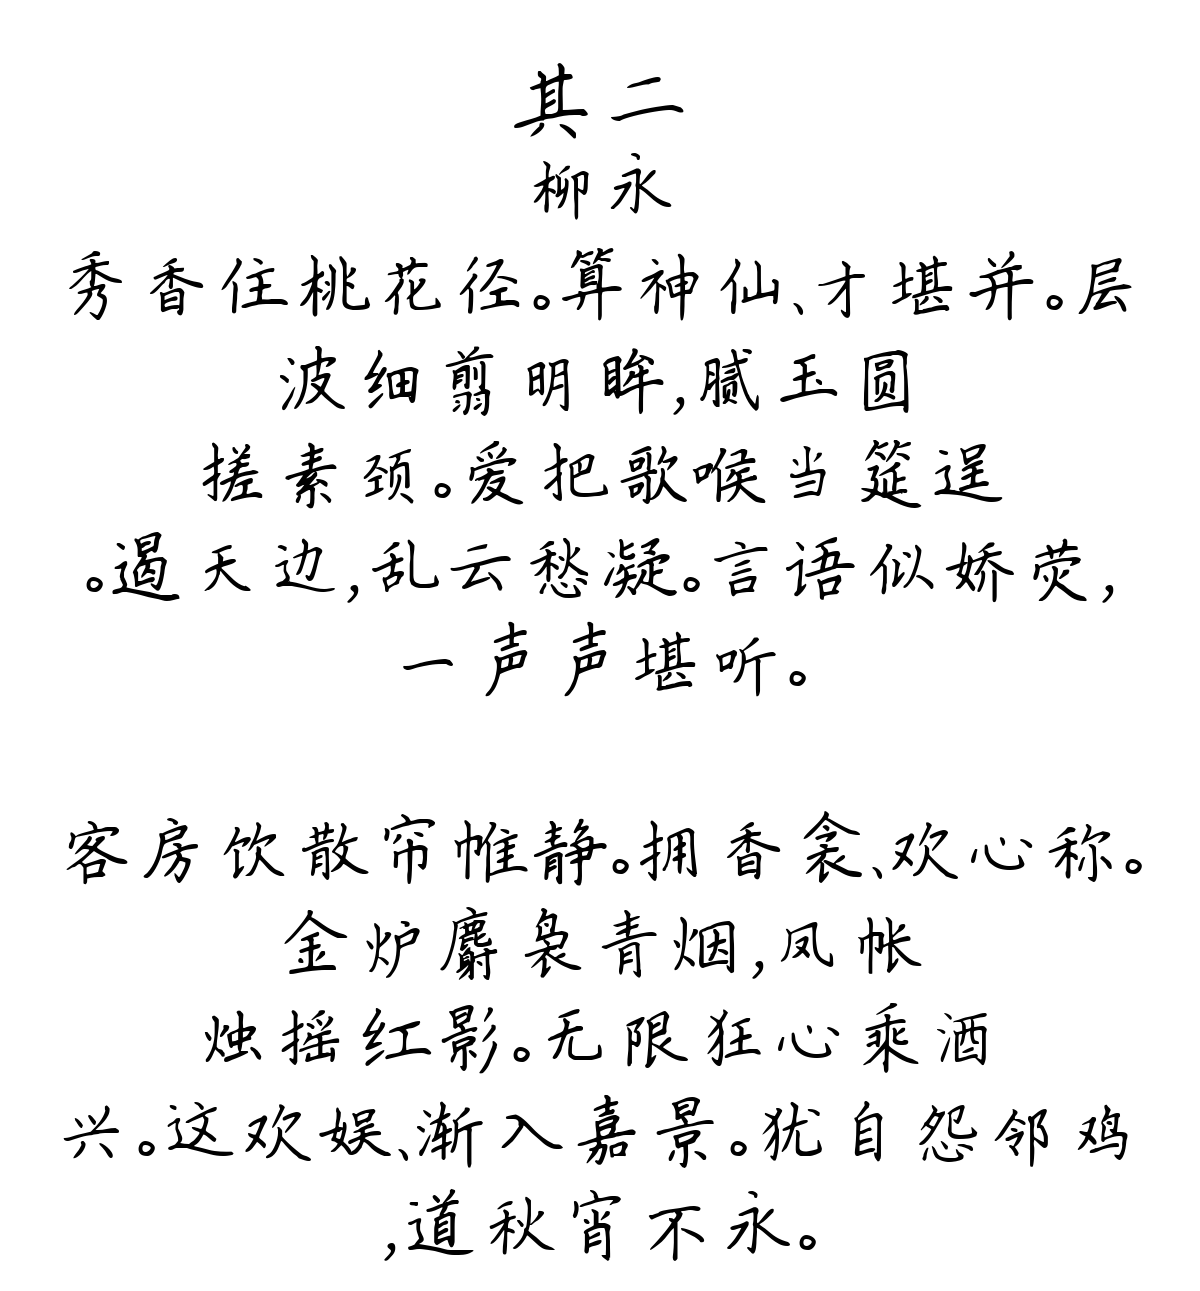 其二
柳永
秀香住桃花径。算神仙、才堪并。层
波细翦明眸,腻玉圆
搓素颈。爱把歌喉当筵逞
。遏天边,乱云愁凝。言语似娇荧,
一声声堪听。
客房饮散帘帷静。拥香衾、欢心称。
金炉麝袅青烟,凤帐
烛摇红影。无限狂心乘酒
兴。这欢娱、渐入嘉景。犹自怨邻鸡
,道秋宵不永。